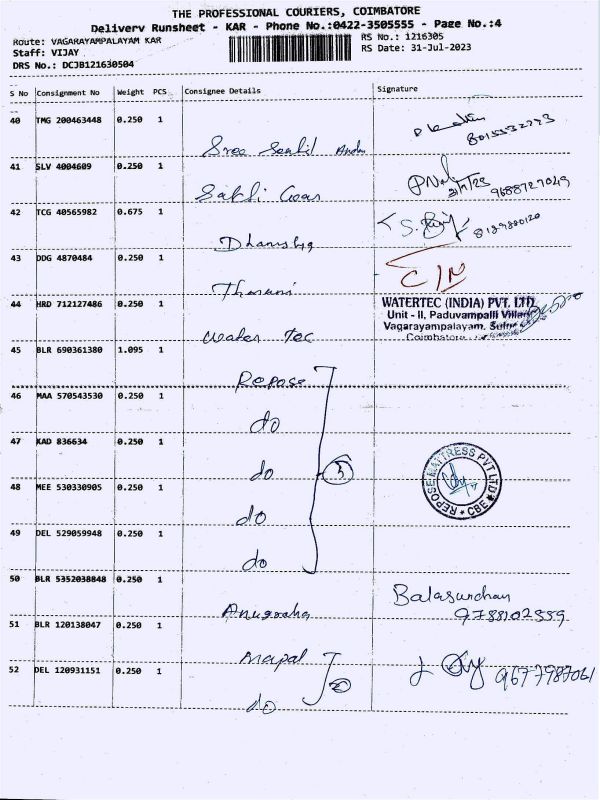 THE PROFESSIONAL COURIERS, COIMBATORE
Delivery Runsheet - KAR - Phone No.:0422-3505555 - Page No.:4
Route: VAGARAYAMPALAYAM KAR
RS No.: 1216305
Staff: VIJAY
RS Date: 31-Jul-2023
DRS No.: DCJB121630504
S No Consignment No Weight PCS Consignee Details Signature
40 TMG 200463448 0.250 1
8015332773
Sree Senthil
41 SLV 4004609 0.250 1
9688727049
Sakthi Gears
42 TCG 40565982 0.675 1
8189880120
Dhanushya
43 DDG 4870484 0.250 1
C/N
Tharani
44 HRD 712127486 0.250 1
WATERTEC (INDIA) PVT. LTD
Unit - II, Paduvampalli Village
Vagarayampalayam, Sulur
Coimbatore
Water Tec
45 BLR 690361380 1.095 1
Repose
46 MAA 570543530 0.250 1
do
47 KAD 836634 0.250 1
do
5
REPOSE MATTRESS PVT LTD
* CBE *
48 MEE 530330905 0.250 1
do
49 DEL 529059948 0.250 1
do
50 BLR 5352038848 0.250 1
Balasundhar
9788102559
Anugraha
51 BLR 120138047 0.250 1
Mapal
2
52 DEL 120931151 0.250 1
9677987061
do